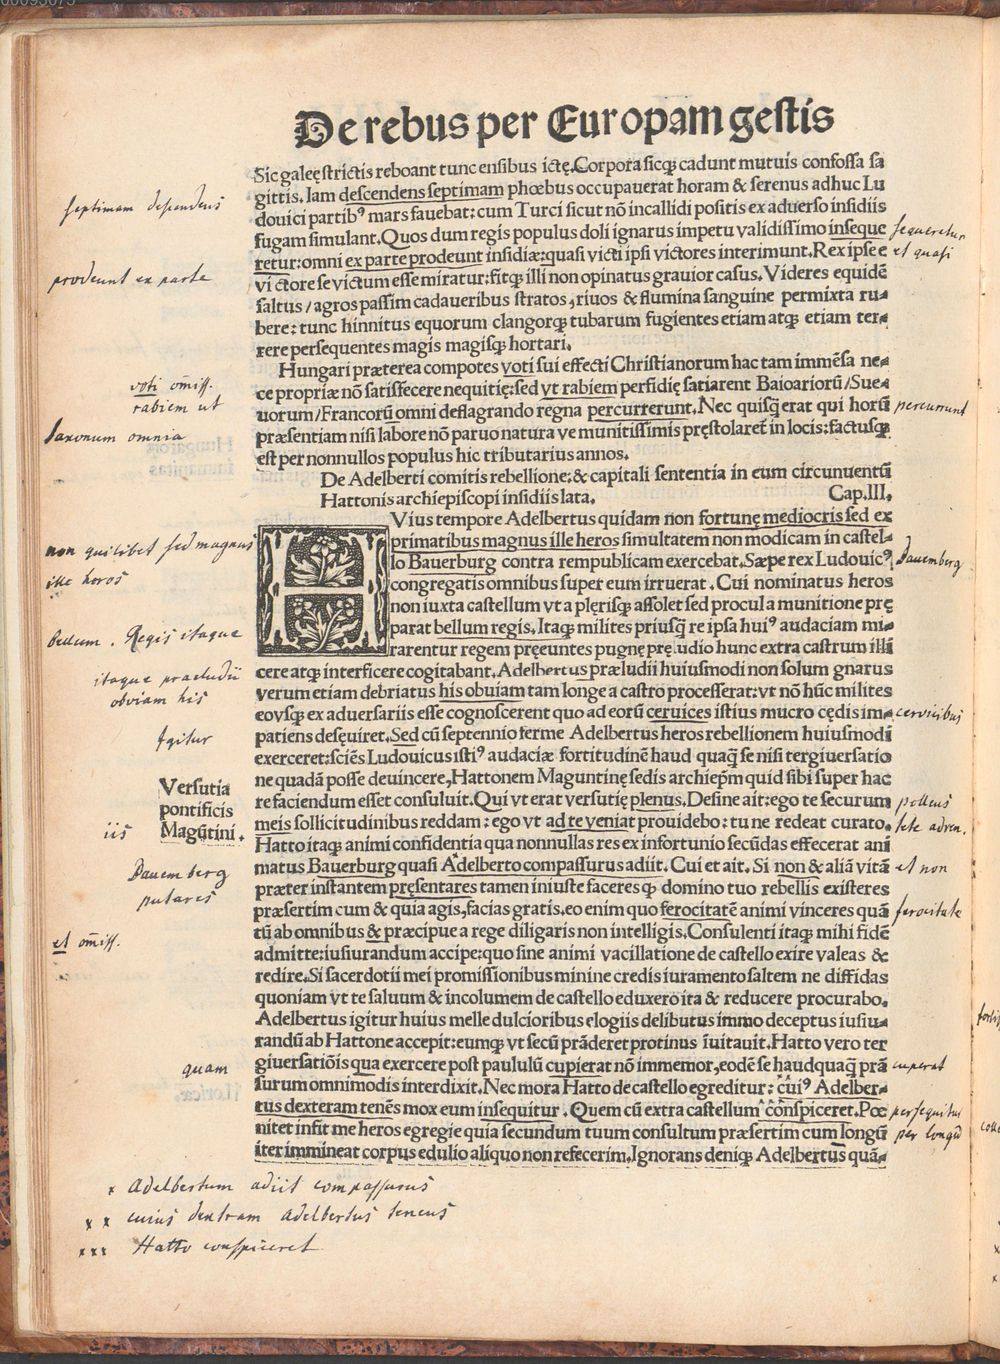 De rebus per Europam gestis
Sic galeę strictis reboant tunc ensibus ictę. Corpora sicq; cadunt mutuis confossa sa
gittis. Iam descendens septimam phœbus occupauerat horam & serenus adhuc Lu
douici partibꝰ mars fauebat: cum Turci sicut nō incallidi positis ex aduerso insidiis
fugam simulant. Quos dum regis populus doli ignarus impetu validissimo inseque
retur: omni ex parte prodeunt insidiæ: quasi victi ipsi victores interimunt. Rex ipse e
victore se victum esse miratur: fitq; illi non opinatus grauior casus. Videres equidē
saltus / agros passim cadaueribus stratos, riuos & flumina sanguine permixta ru-
bere: tunc hinnitus equorum clangorq; tubarum fugientes etiam atq; etiam ter-
rere persequentes magis magisq; hortari.
Hungari præterea compotes voti sui effecti Christianorum hac tam immēsa ne-
ce propriæ nō satisfecere nequitię: sed vt rabiem perfidię satiarent Baioariorū / Sue-
uorum / Francorū omni deflagrando regna percurrerunt. Nec quisq̄ erat qui horū
præsentiam nisi labore nō paruo natura ve munitissimis pręstolaret̄ in locis: factusq;
est per nonnullos populus hic tributarius annos.
De Adelberti comitis rebellione: & capitali sententia in eum circunuentū
Hattonis archiepiscopi insidiis lata. Cap. III.
HVius tempore Adelbertus quidam non fortunę mediocris sed ex
primatibus magnus ille heros simultatem non modicam in castel-
lo Bauerburg contra rempublicam exercebat. Sæpe rex Ludouicꝰ
congregatis omnibus super eum irruerat. Cui nominatus heros
non iuxta castellum vt a plęrisq; assolet sed procul a munitione prę
parat bellum regis. Itaq; milites priusq̄ re ipsa huiꝰ audaciam mi-
rarentur regem pręeuntes pugnę pręludio hunc extra castrum illi
cere atq; interficere cogitabant. Adelbertus præludii huiusmodi non solum gnarus
verum etiam debriatus his obuiam tam longe a castro processerat: vt nō hūc milites
eovsq; ex aduersariis esse cognoscerent quo ad eorū ceruices istius mucro cędis im-
patiens desęuiret. Sed cū septennio ferme Adelbertus heros rebellionem huiusmodi
exerceret: sciēs Ludouicus istiꝰ audaciæ fortitudinē haud quaq̄ se nisi tergiuersatio
ne quadā posse deuincere, Hattonem Maguntinę sedis archiep̄m quid sibi super hac
re faciendum esset consuluit. Qui vt erat versutię plenus. Desine ait: ego te securum
meis sollicitudinibus reddam: ego vt ad te veniat prouidebo: tu ne redeat curato.
Hatto itaq; animi confidentia qua nonnullas res ex infortunio secūdas effecerat ani
matus Bauerburg quasi Adelberto compassurus adiit. Cui et ait. Si non & aliā vitā
præter instantem pręsentares tamen iniuste faceres q; domino tuo rebellis existeres
præsertim cum & quia agis, facias gratis. eo enim quo ferocitatē animi vinceres quā
tū ab omnibus & præcipue a rege diligaris non intelligis. Consulenti itaq; mihi fidē
admitte: iusiurandum accipe: quo sine animi vacillatione de castello exire valeas &
redire. Si sacerdotii mei promissionibus minine credis iuramento saltem ne diffidas
quoniam vt te saluum & incolumem de castello eduxero ita & reducere procurabo.
Adelbertus igitur huius melle dulcioribus elogiis delibutus immo deceptus iusiu-
randū ab Hattone accepit: eumq; vt secū prāderet protinus īuitauit. Hatto vero ter
giuersatiōis qua exercere post paululū cupierat nō immemor, eodē se haudquaq̄ prā
surum omnimodis interdixit. Nec mora Hatto de castello egreditur: cuiꝰ Adelber-
tus dexteram tenēs mox eum insequitur. Quem cū extra castellum cōnspiceret. Pœ
nitet infit me heros egregie quia secundum tuum consultum præsertim cum longū
iter immineat corpus edulio aliquo non refecerim. Ignorans deniq; Adelbertus quā-
septimam descendens
prodeunt ex parte
voti omiss.
rabiem ut
saxonum omnia
non quilibet sed magnus
ille heros
bellum. Regis itaque
itaque praeludii
obviam his
Igitur
Versutia
pontificis
Magūtini.
iis
Bauemberg
putares
et omiss.
quam
sequeretur
et quasi
percurrunt
Bauemberg
cervicibus
pollens
et non
ferocitate
cuperat
persequitur
per longū
x Adelbertum adiit compassurus
x x cuius dextram Adelbertus tenens
xxx Hatto conspiceret